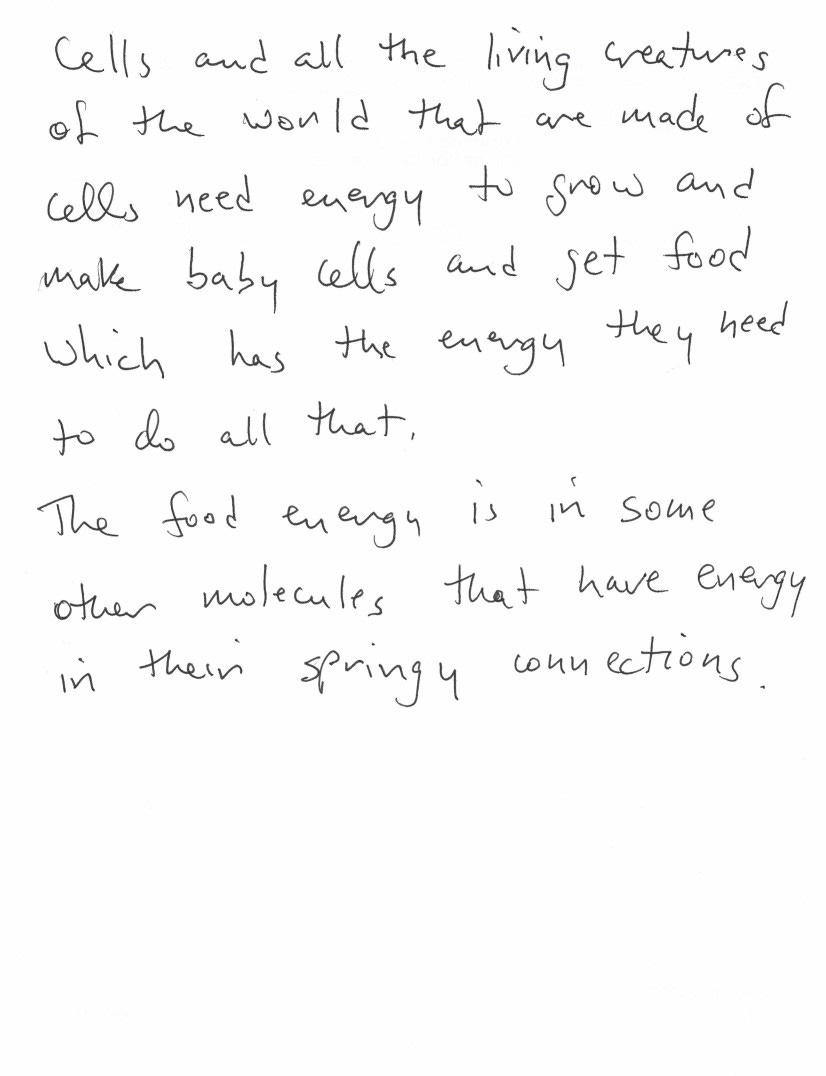 Cells and all the living creatures
of the world that are made of
cells need energy to grow and
make baby cells and get food
which has the energy they need
to do all that.
The food energy is in some
other molecules that have energy
in their springy connections.